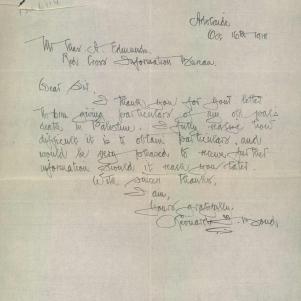 Adelaide
Oct 16th 1918
Mr Chas A Edmunds
Red Cross Information Bureau.
Dear Sir,
I thank you for your letter
giving particulars of my old pal's
death in Palestine. I fully realise how
difficult it is to obtain particulars, and
would be very pleased to receive further
information should it reach you later
With sincere thanks,
I am,
Yours gratefully,